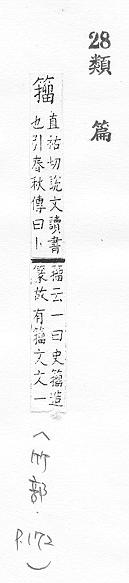 28
類篇
籀
直祐切說文讀書
也引春秋傳曰卜
籀云一曰史籀造
篆故有籀文文一
(竹部.
P.172)